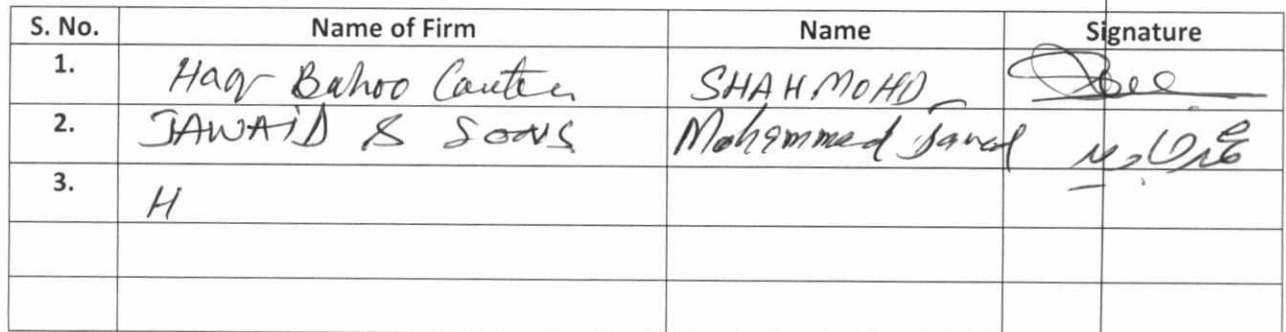 S. No. Name of Firm Name Signature
1. Haq Bahoo Canteen SHAH MOHD
2. JAWAID & SONS Mohammed Javed محمد جاوید
3. H